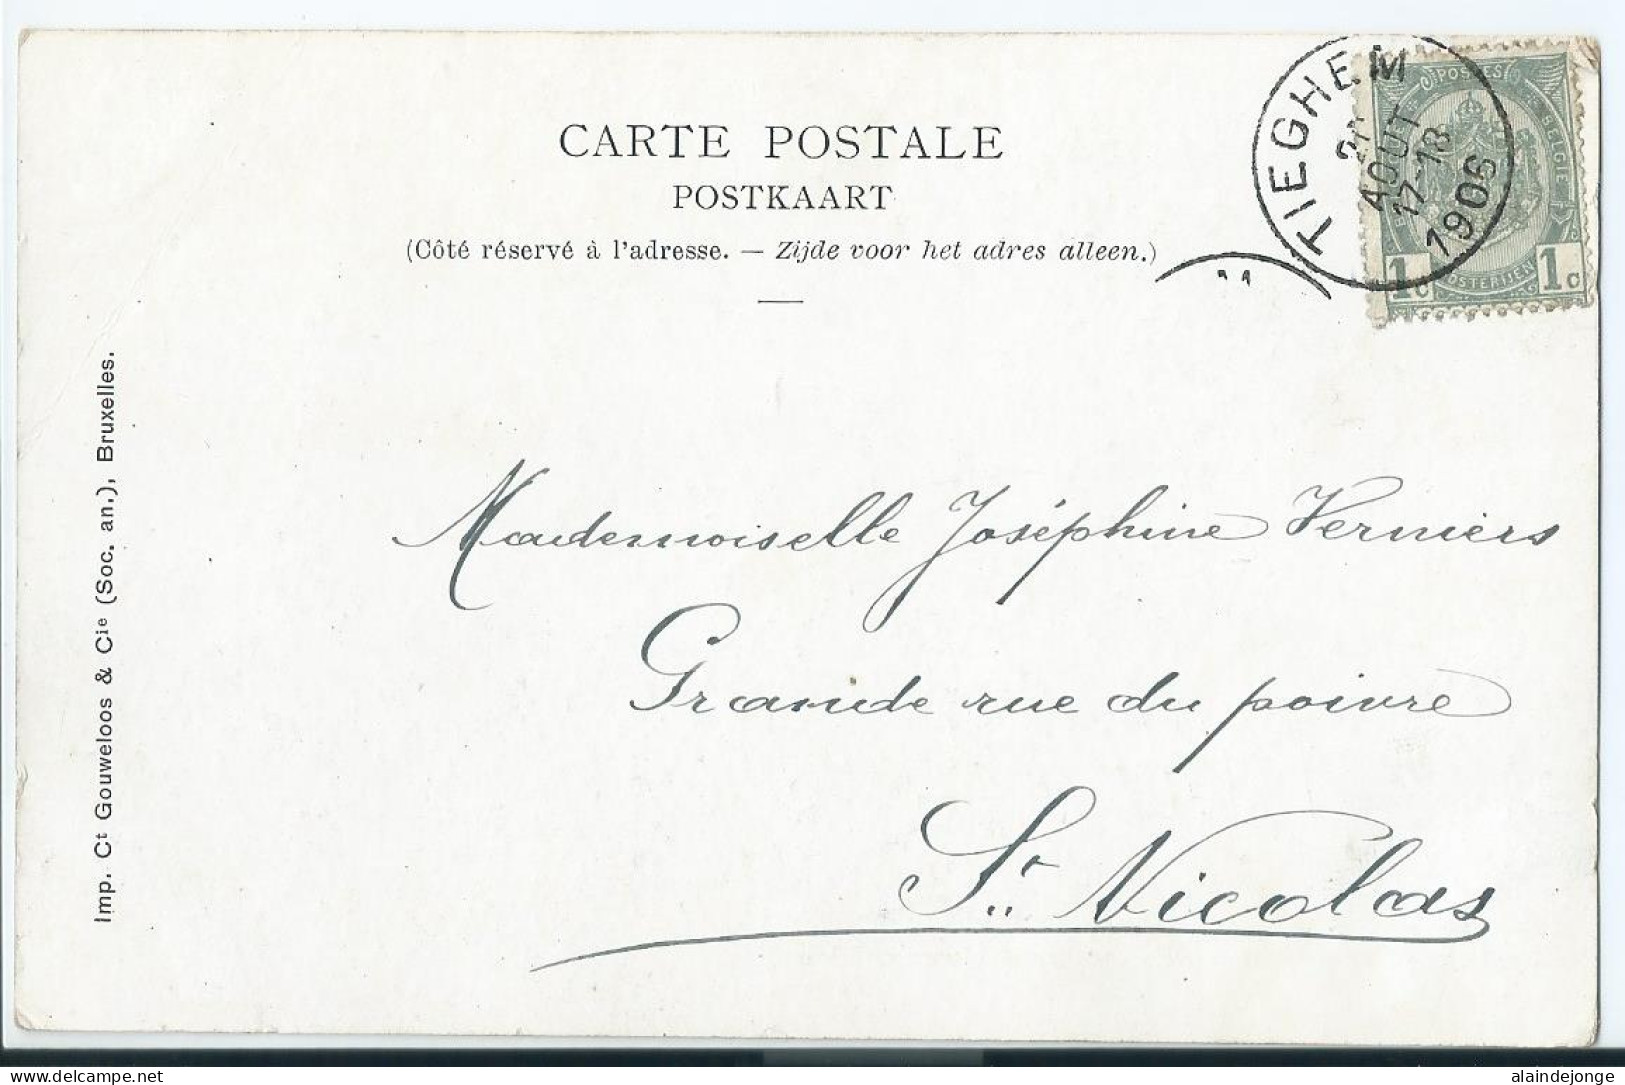 CARTE POSTALE
POSTKAART
(Côté réservé à l'adresse. — Zijde voor het adres alleen.)
TIEGHEM
AOUT
17-18
1906
POSTES
BELGIE
POSTERIJEN
1c 1c
Mademoiselle Joséphine Verniers
Grande rue du poivre
St. Nicolas
Imp. Ct Gouweloos & Cie (Soc. an.), Bruxelles.
www.delcampe.net
alaindejonge